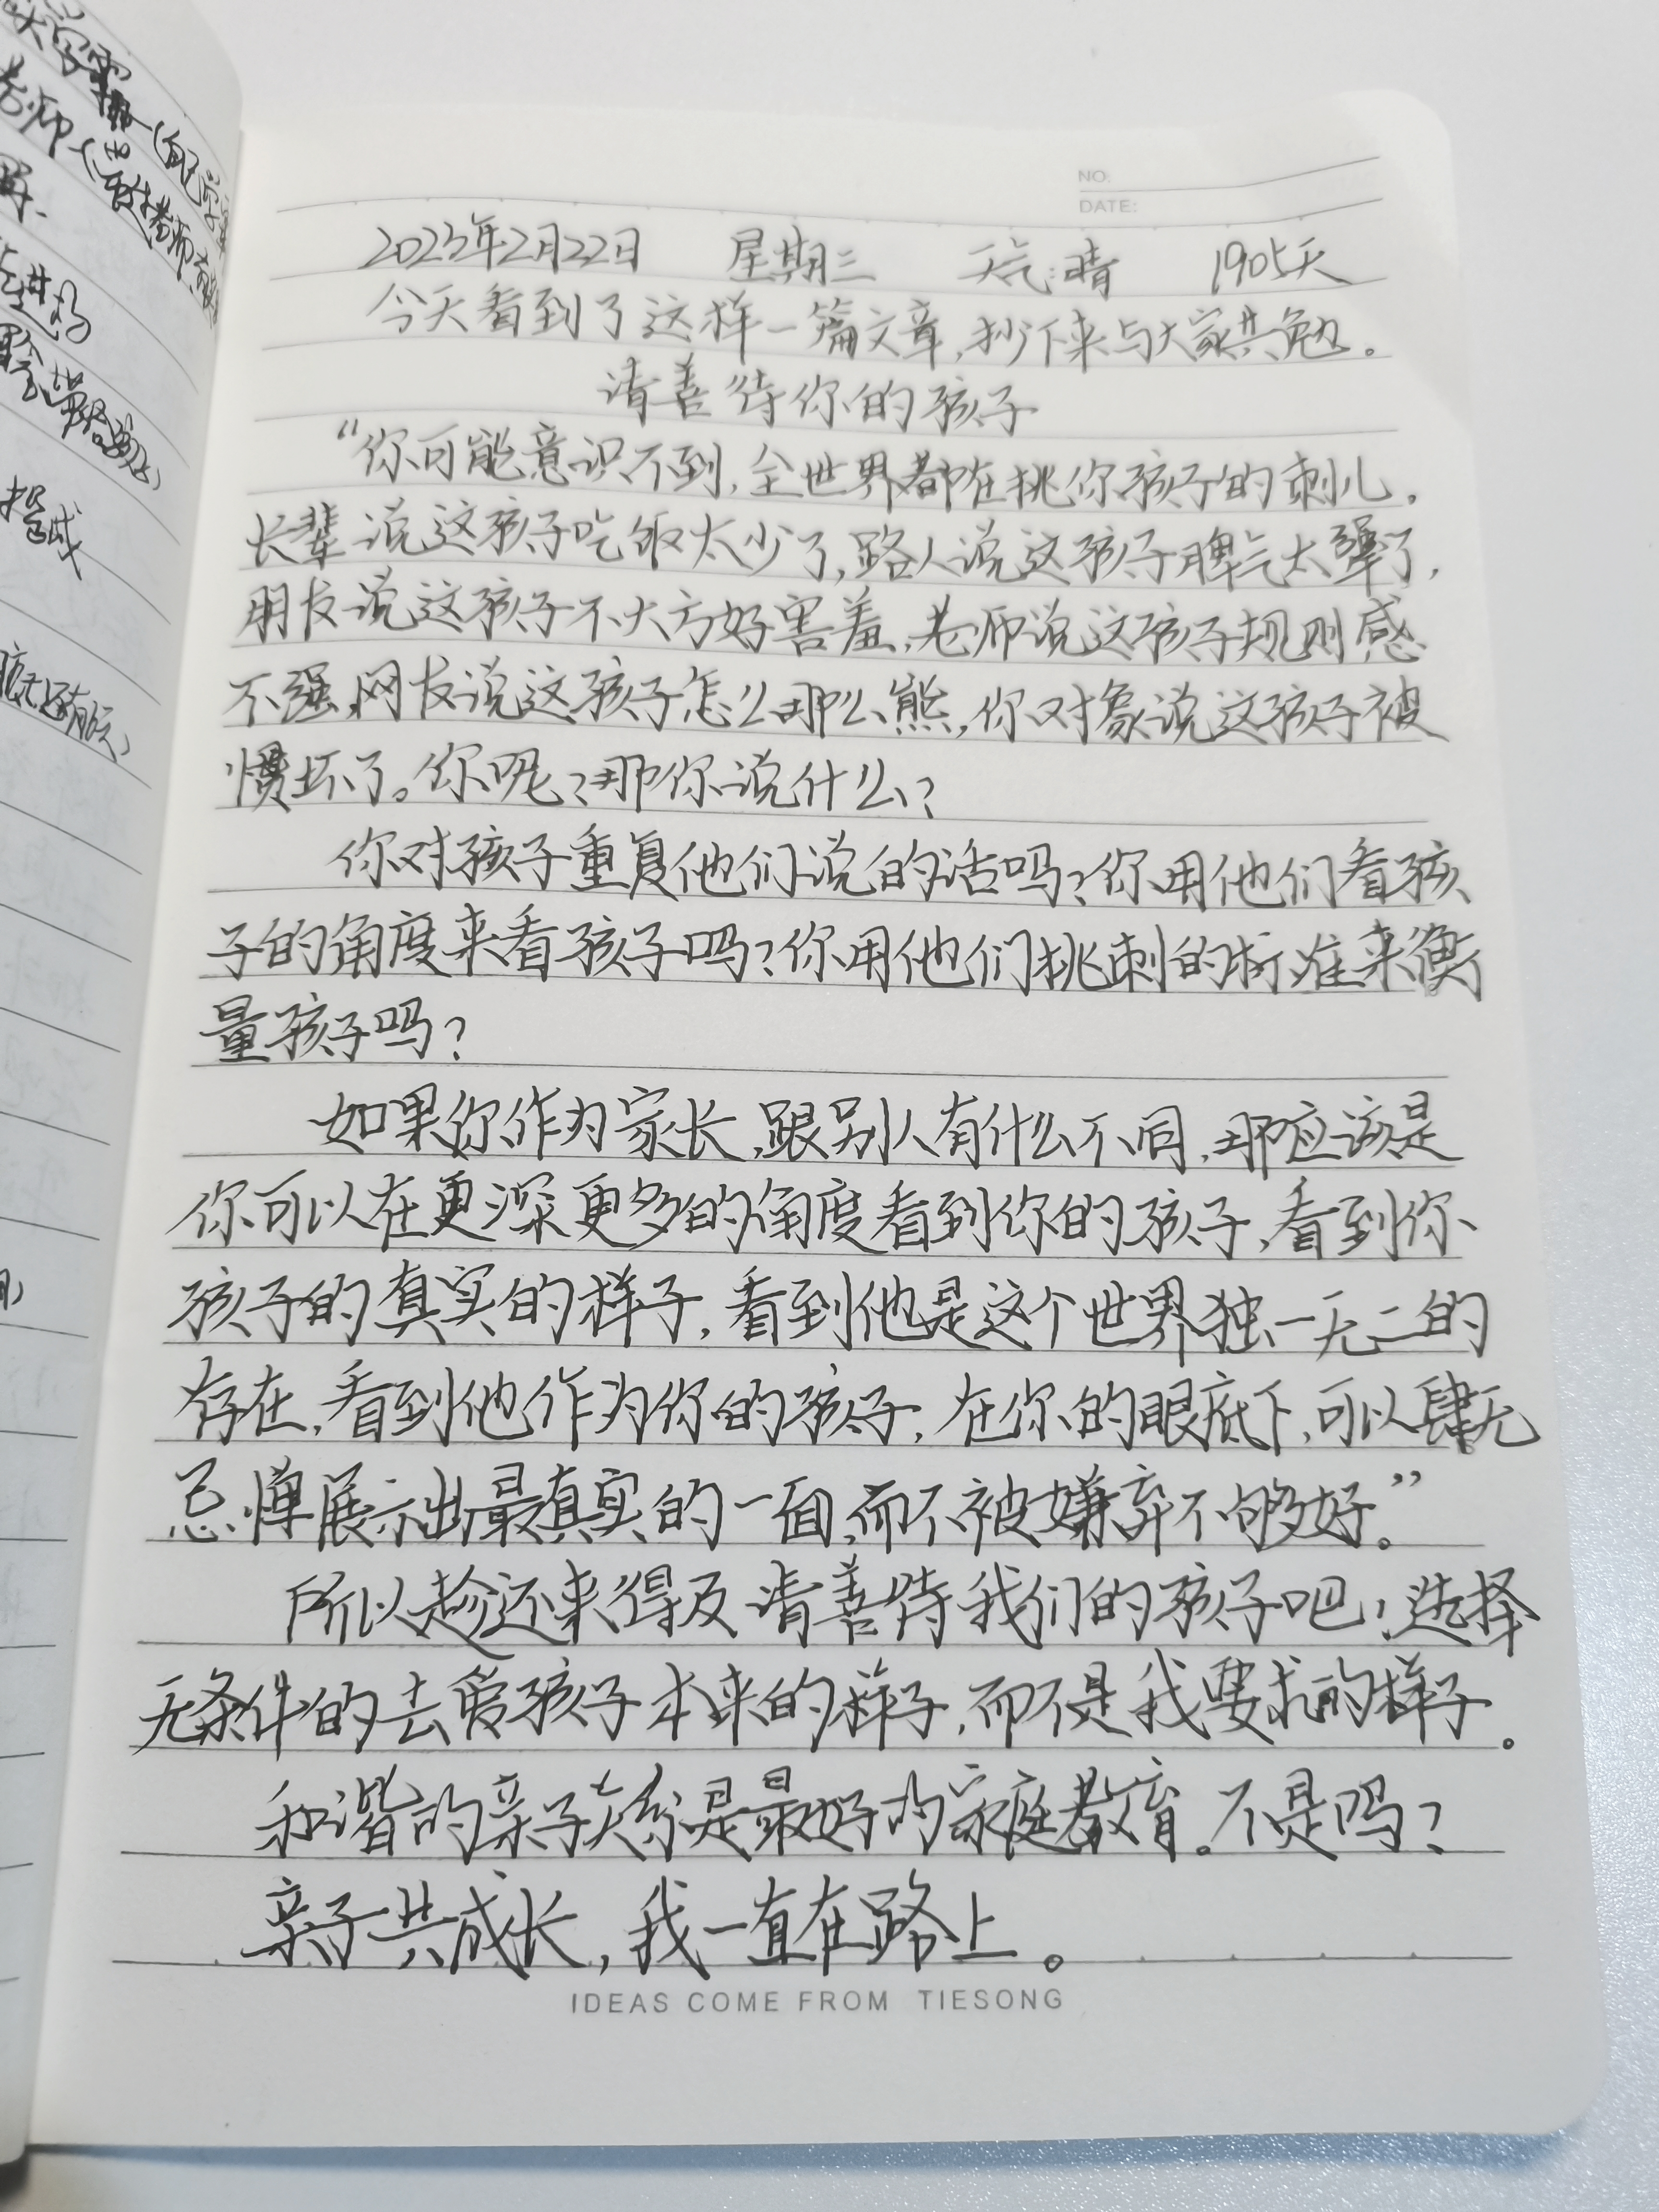 NO:
DATE:
2023年2月22日 星期三 天气:晴 1905天
今天看到了这样一篇文章,抄下来与大家共勉。
请善待你的孩子
“你可能意识不到,全世界都在挑你孩子的刺儿。
长辈说这孩子吃饭太少了,路人说这孩子脾气太犟了,
朋友说这孩子不大方好害羞,老师说这孩子规则感
不强,网友说这孩子怎么那么熊,你对象说这孩子被
惯坏了。你呢?那你说什么?
你对孩子重复他们说的话吗?你用他们看孩
子的角度来看孩子吗?你用他们挑刺的标准来衡
量孩子吗?
如果你作为家长,跟别人有什么不同,那应该是
你可以在更深更多的角度看到你的孩子,看到你
孩子的真实的样子,看到他是这个世界独一无二的
存在,看到他作为你的孩子,在你的眼底下,可以肆无
忌惮展示出最真实的一面,而不被嫌弃不够好。”
所以趁还来得及请善待我们的孩子吧!选择
无条件的去爱孩子本来的样子,而不是我要求的样子。
和谐的亲子关系是最好的家庭教育。不是吗?
亲子共成长,我一直在路上。
IDEAS COME FROM TIESONG